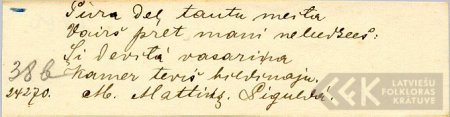 Pūra dēļ tautu meita
Vairs pret mani nelūdzees:
Ši devitā vasariņa
Kamer tevis bildinaju.
38b
24270. M. Mattiņ. Siguldā.
LATVIEŠU
FOLKLORAS
KRĀTUVE